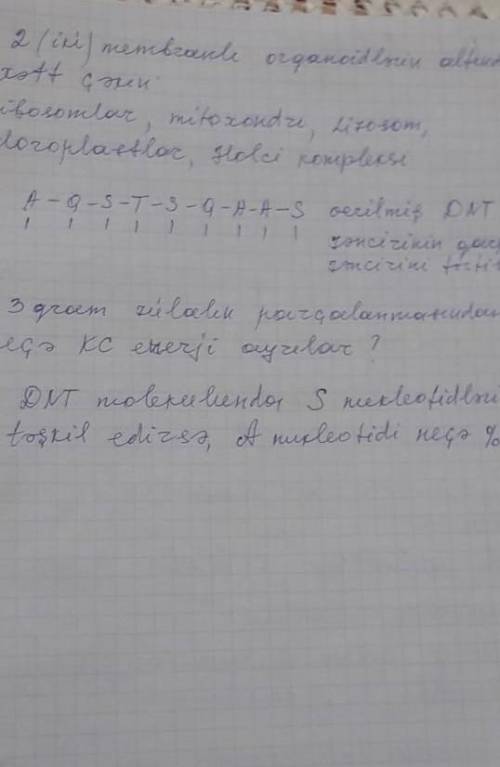 2 (iki) membranlı organoidlərin altınd
xətt çəkin
ibosomlar, mitoxondri, Lizosom,
loroplastlar, Holci kompleksi
A - Q - S - T - S - Q - A - A - S verilmiş DNT
zəncirinin qarş
zəncirini tərti
3 qram zülalın parçalanmasından
eçə KC enerji ayrılar?
DNT molekulunda S nukleotidləri
təşkil edirsə, A nukleotidi neçə %